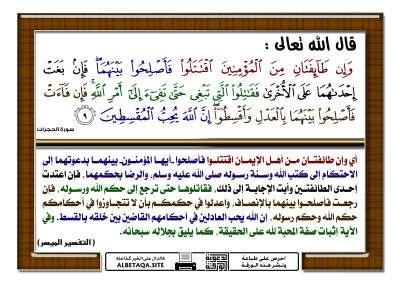 قال الله تعالى :
وَإِن طَآئِفَتَانِ مِنَ الْمُؤْمِنِينَ اقْتَتَلُوا فَأَصْلِحُوا بَيْنَهُمَا ۖ فَإِنۢ بَغَتْ
إِحْدَىٰهُمَا عَلَى الْأُخْرَىٰ فَقَٰتِلُوا الَّتِي تَبْغِي حَتَّىٰ تَفِيٓءَ إِلَىٰٓ أَمْرِ اللَّهِ ۚ فَإِن فَآءَتْ
فَأَصْلِحُوا بَيْنَهُمَا بِالْعَدْلِ وَأَقْسِطُوٓا ۖ إِنَّ اللَّهَ يُحِبُّ الْمُقْسِطِينَ ٩
سورة الحجرات
أي وإن طائفتان من أهل الإيمان اقتتلوا فأصلحوا -أيها المؤمنون- بينهما بدعوتهما إلى
الاحتكام إلى كتاب الله وسنة رسوله صلى الله عليه وسلم، والرضا بحكمهما، فإن اعتدت
إحدى الطائفتين وأبت الإجابة إلى ذلك، فقاتلوها حتى ترجع إلى حكم الله ورسوله، فإن
رجعت فأصلحوا بينهما بالإنصاف، واعدلوا في حكمكم بأن لا تتجاوزوا في أحكامكم
حكم الله وحكم رسوله، إن الله يحب العادلين في أحكامهم القاضين بين خلقه بالقسط. وفي
الآية إثبات صفة المحبة لله على الحقيقة، كما يليق بجلاله سبحانه.
( التفسير الميسر)
احرص على طباعة
ونشر هذه الورقة
ALBETAQA.SITE